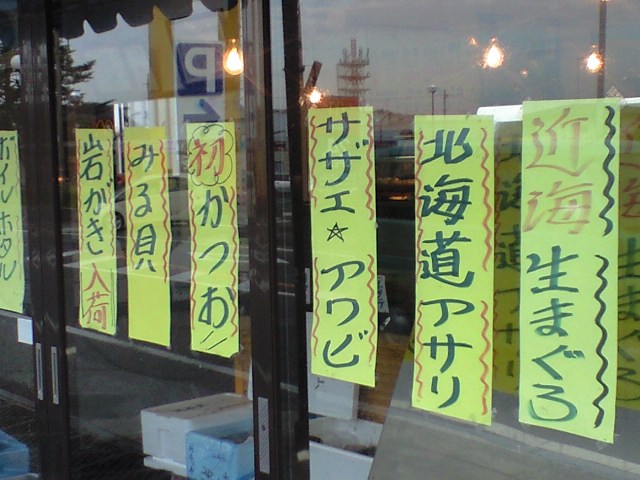 近海生まぐろ
北海道アサリ
サザエ☆アワビ
初かつお!!
みる貝
岩がき入荷
ボイルホタル
P